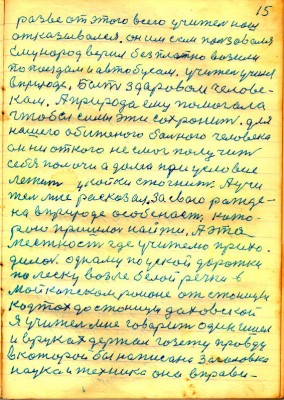 15
разве от этого всего учител наш
отказывался. он им сам ползовался
ему народ верил бесплатно возили
по поездам и автобусам. учител учился
в природе. Быть здоровом челове-
кам. А природа ему помогала
чтобы силы эти сохранит. для
нашего обиженого болного человека
он ни откого не смог получить
себя помочи а дома при условие
лежит у койки стогнит. А учи
тел мне расказал. За свого рожде-
на в природе особеност, кото-
рою пришлос найти. А эта
местност где учителю прихо.
дилос одному по узкой дорожки
по леску возле белой речки в
майкопском районе от станицы
до станицы даховской
Я учител мне говарит один шел
и в руках держал газету правду
в которой бы написана Заголовка
наука и техника она вправи-